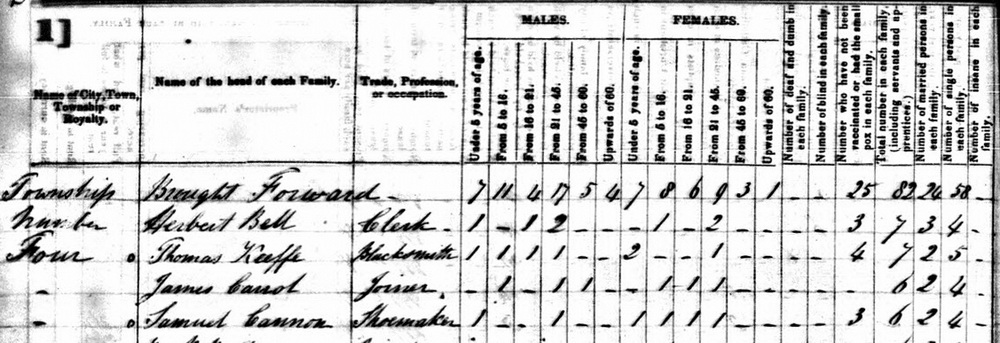 1]
MALES. FEMALES.
Name of City, Town, Township or Royalty.
Name of the head of each Family.
Trade, Profession, or occupation.
Under 5 years of age.
From 5 to 16.
From 16 to 21.
From 21 to 45.
From 45 to 60.
Upwards of 60.
Under 5 years of age.
From 5 to 16.
From 16 to 21.
From 21 to 45.
From 45 to 60.
Upwards of 60.
Number of deaf and dumb in each family.
Number of blind in each family.
Number who have not been vaccinated or had the small pox in each family.
Total number in each family, (including servants and apprentices.)
Number of married persons in each family.
Number of single persons in each family.
Number of insane in each family.
Township Brought Forward - 7 11 4 17 5 4 7 8 6 9 3 1 - - 25 82 24 58 -
Number Herbert Bell Clerk - 1 - 1 2 - - - 1 - 2 - - - - 3 7 3 4 -
Four o Thomas Keeffe Blacksmith 1 1 1 1 - - 2 - - 1 - - - - 4 7 2 5 -
- James Carrol Joiner - 1 - 1 1 - - 1 1 1 - - - - - 6 2 4 -
- o Samuel Cannon Shoemaker 1 - - 1 - - 1 1 1 1 - - - - 3 6 2 4 -